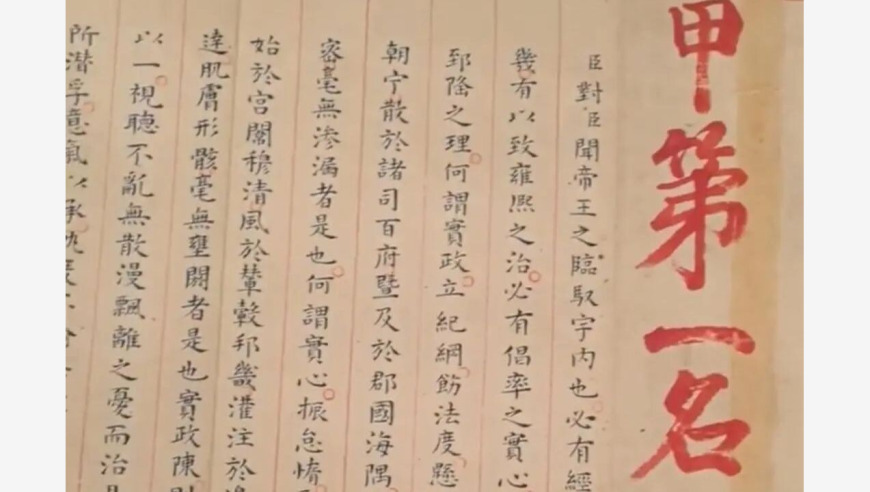 甲第一名
臣對臣聞帝王之臨馭宇内也必有經
幾有以致雍熙之治必有倡率之實心
郅隆之理何謂實政立紀綱飭法度懸
朝宁散於諸司百府暨及於郡國海隅
審毫無滲漏者是也何謂實心振怠惰
始於宮闈穆清風於輦轂邦畿灌注於
達肌膚形骸毫無壅閼者是也實政陳
以一視聽不亂無散漫飄離之憂而治
所潛孚意氣以承